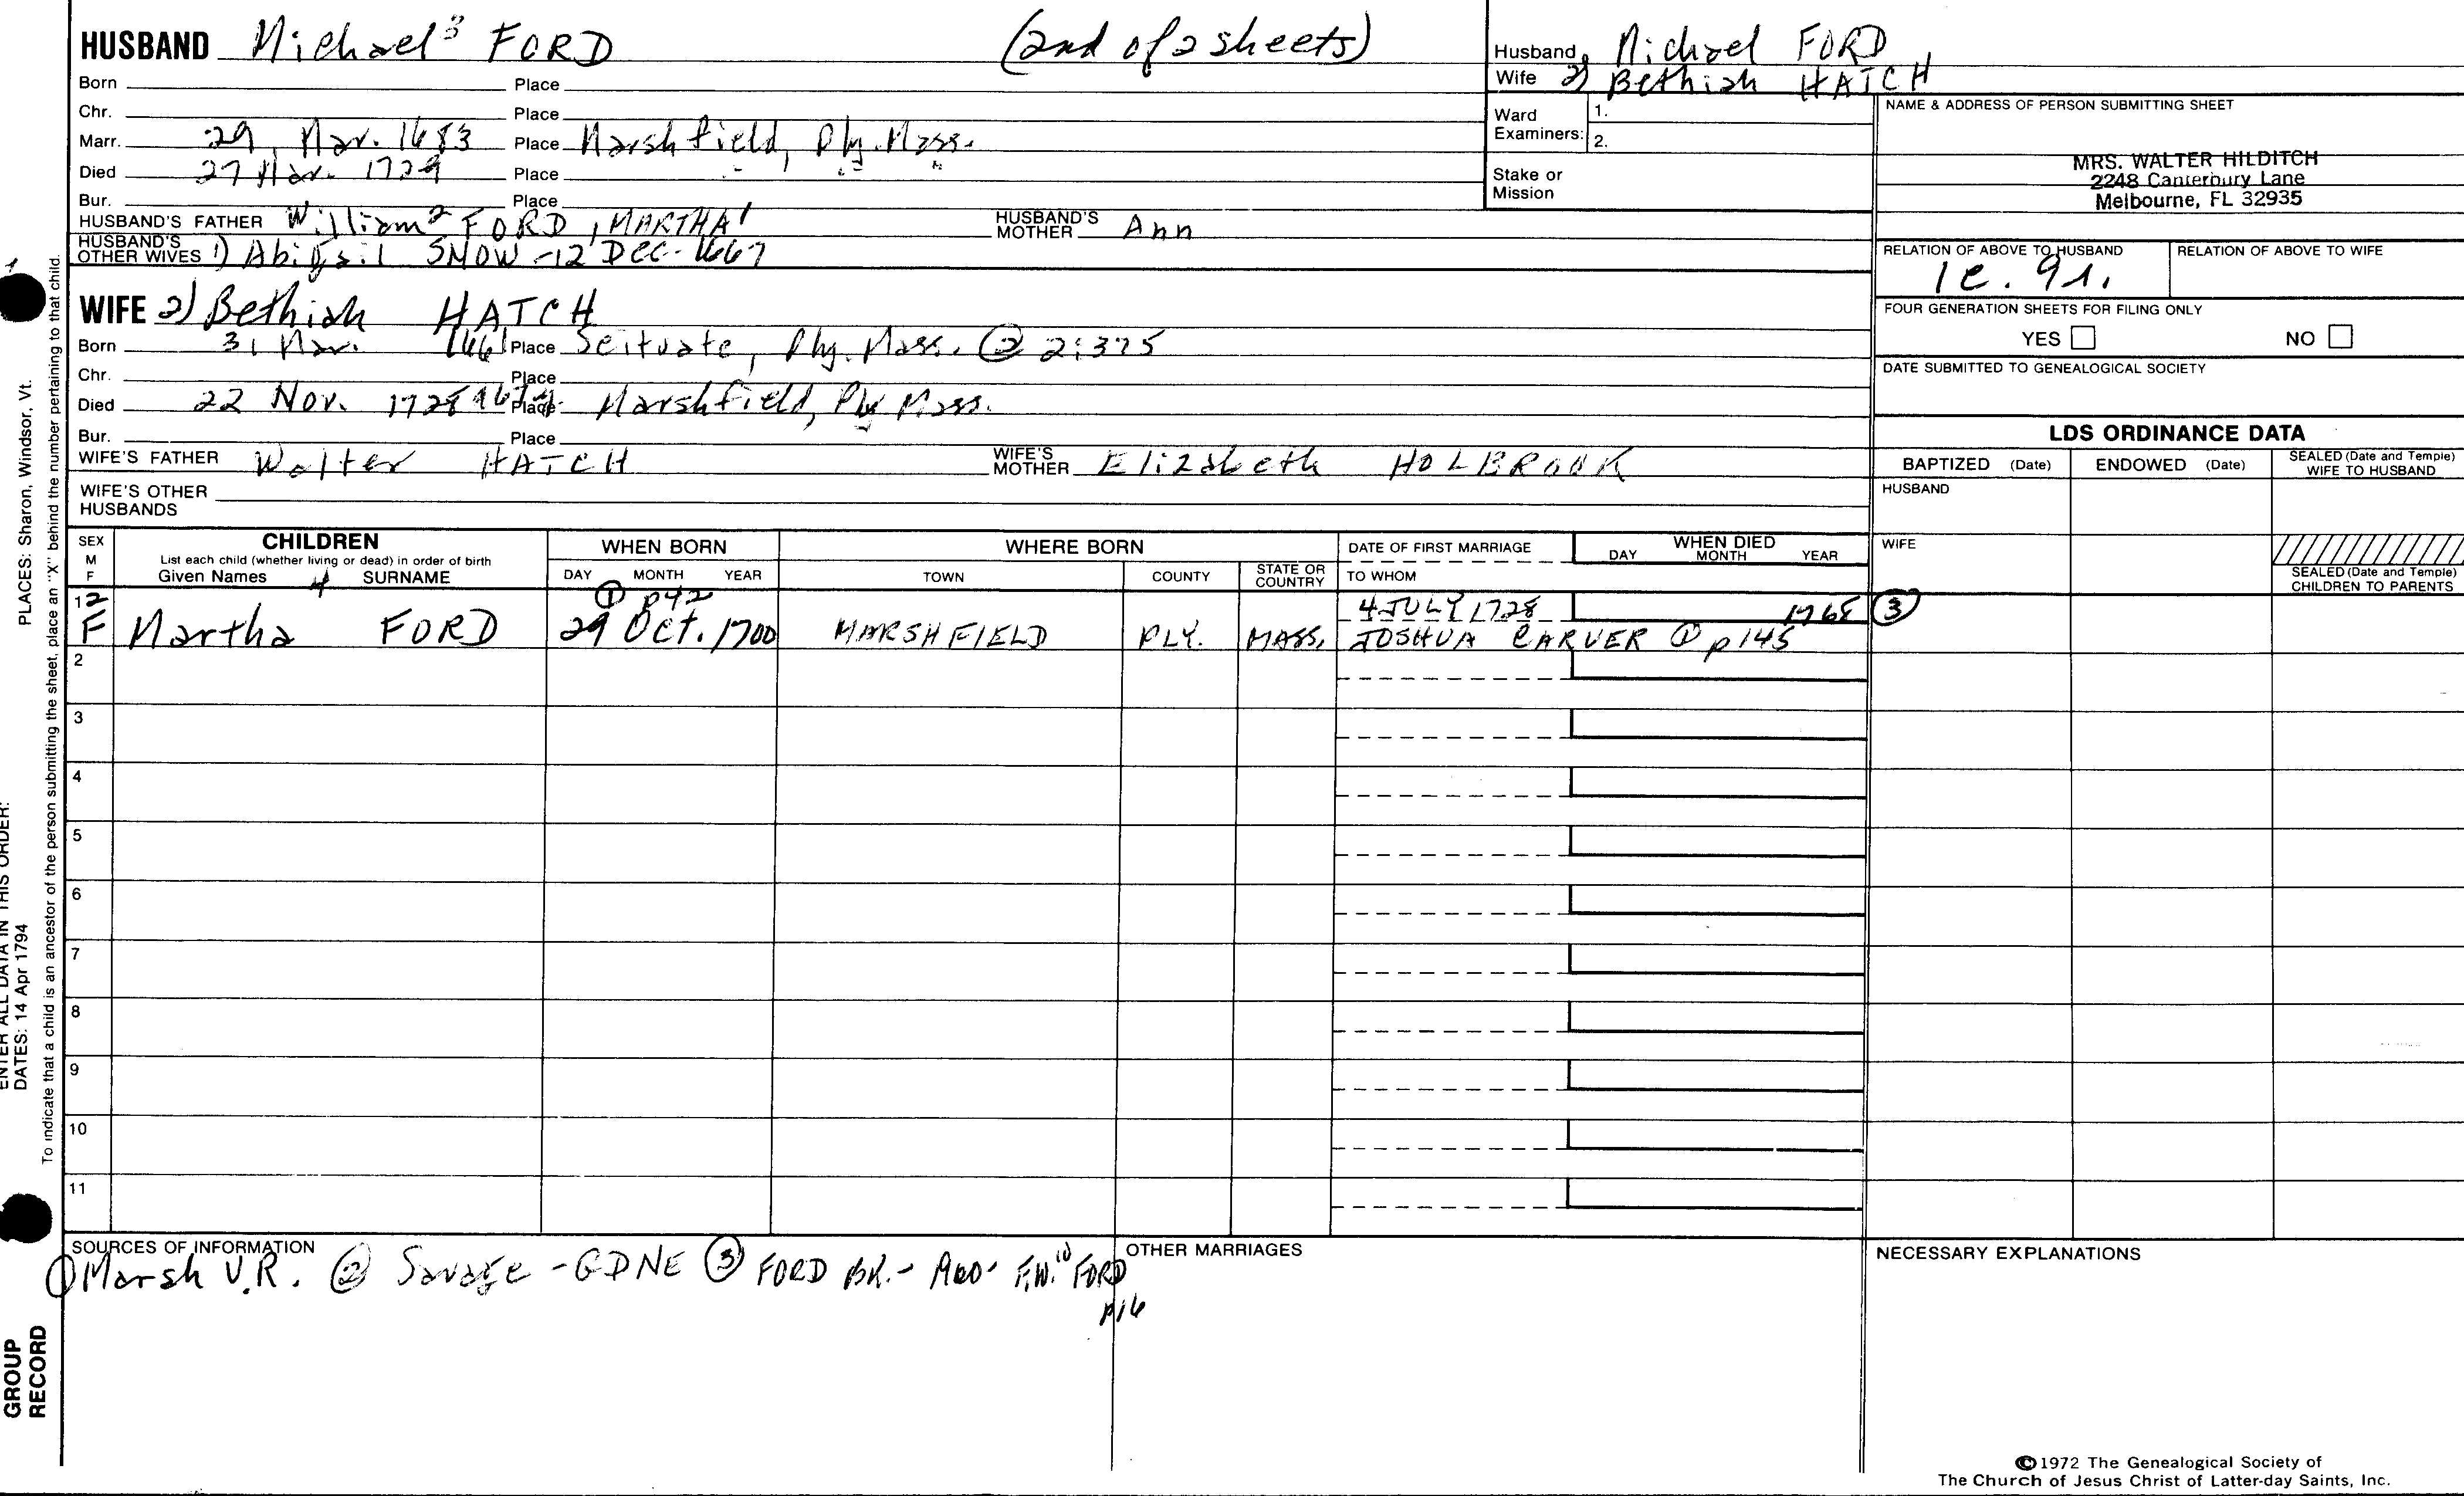 HUSBAND Michael³ FORD (2nd of 2 sheets)
Born Place
Chr. Place
Marr. 29, Mar. 1683 Place Marshfield, Ply. Mass.
Died 27 Mar. 1729 Place " " "
Bur. Place
HUSBAND'S FATHER William² FORD, MARTHA¹ HUSBAND'S MOTHER Ann
HUSBAND'S OTHER WIVES 1) Abigail SNOW - 12 DEC. 1667
WIFE 2) Bethiah HATCH
Born 31 Mar. 1661 Place Scituate, Ply. Mass. ② 2:375
Chr. Place
Died 22 Nov. 1728 Place Marshfield, Ply Mass.
Bur. Place
WIFE'S FATHER Walter HATCH WIFE'S MOTHER Elizabeth HOLBROOK
WIFE'S OTHER HUSBANDS
Husband Michael FORD
Wife 2) Bethiah HATCH
Ward Examiners: 1.
2.
Stake or Mission
NAME & ADDRESS OF PERSON SUBMITTING SHEET
MRS. WALTER HILDITCH
2248 Canterbury Lane
Melbourne, FL 32935
RELATION OF ABOVE TO HUSBAND RELATION OF ABOVE TO WIFE
FOUR GENERATION SHEETS FOR FILING ONLY
YES NO
DATE SUBMITTED TO GENEALOGICAL SOCIETY
LDS ORDINANCE DATA
BAPTIZED (Date) ENDOWED (Date) SEALED (Date and Temple) WIFE TO HUSBAND
HUSBAND
WIFE
SEALED (Date and Temple) CHILDREN TO PARENTS
SEX M F CHILDREN WHEN BORN WHERE BORN DATE OF FIRST MARRIAGE WHEN DIED
List each child (whether living or dead) in order of birth
Given Names 4 SURNAME DAY MONTH YEAR TOWN COUNTY STATE OR COUNTRY TO WHOM DAY MONTH YEAR
1 12 ① p42 4 JULY 1728 1768 ③
F Martha FORD 29 Oct. 1700 MARSHFIELD PLY. MASS. JOSHUA CARVER ① p145
2
3
4
5
6
7
8
9
10
11
SOURCES OF INFORMATION OTHER MARRIAGES NECESSARY EXPLANATIONS
① Marsh V.R. ② Savage - GDNE ③ FORD BK. - F.W.¹⁰ FORD
p16
©1972 The Genealogical Society of
The Church of Jesus Christ of Latter-day Saints, Inc.
PLACES: Sharon, Windsor, Vt.
ENTER ALL DATA IN THIS ORDER:
DATES: 14 Apr 1794
To indicate that a child is an ancestor of the person submitting the sheet, place an "X" behind the number pertaining to that child.
GROUP
RECORD